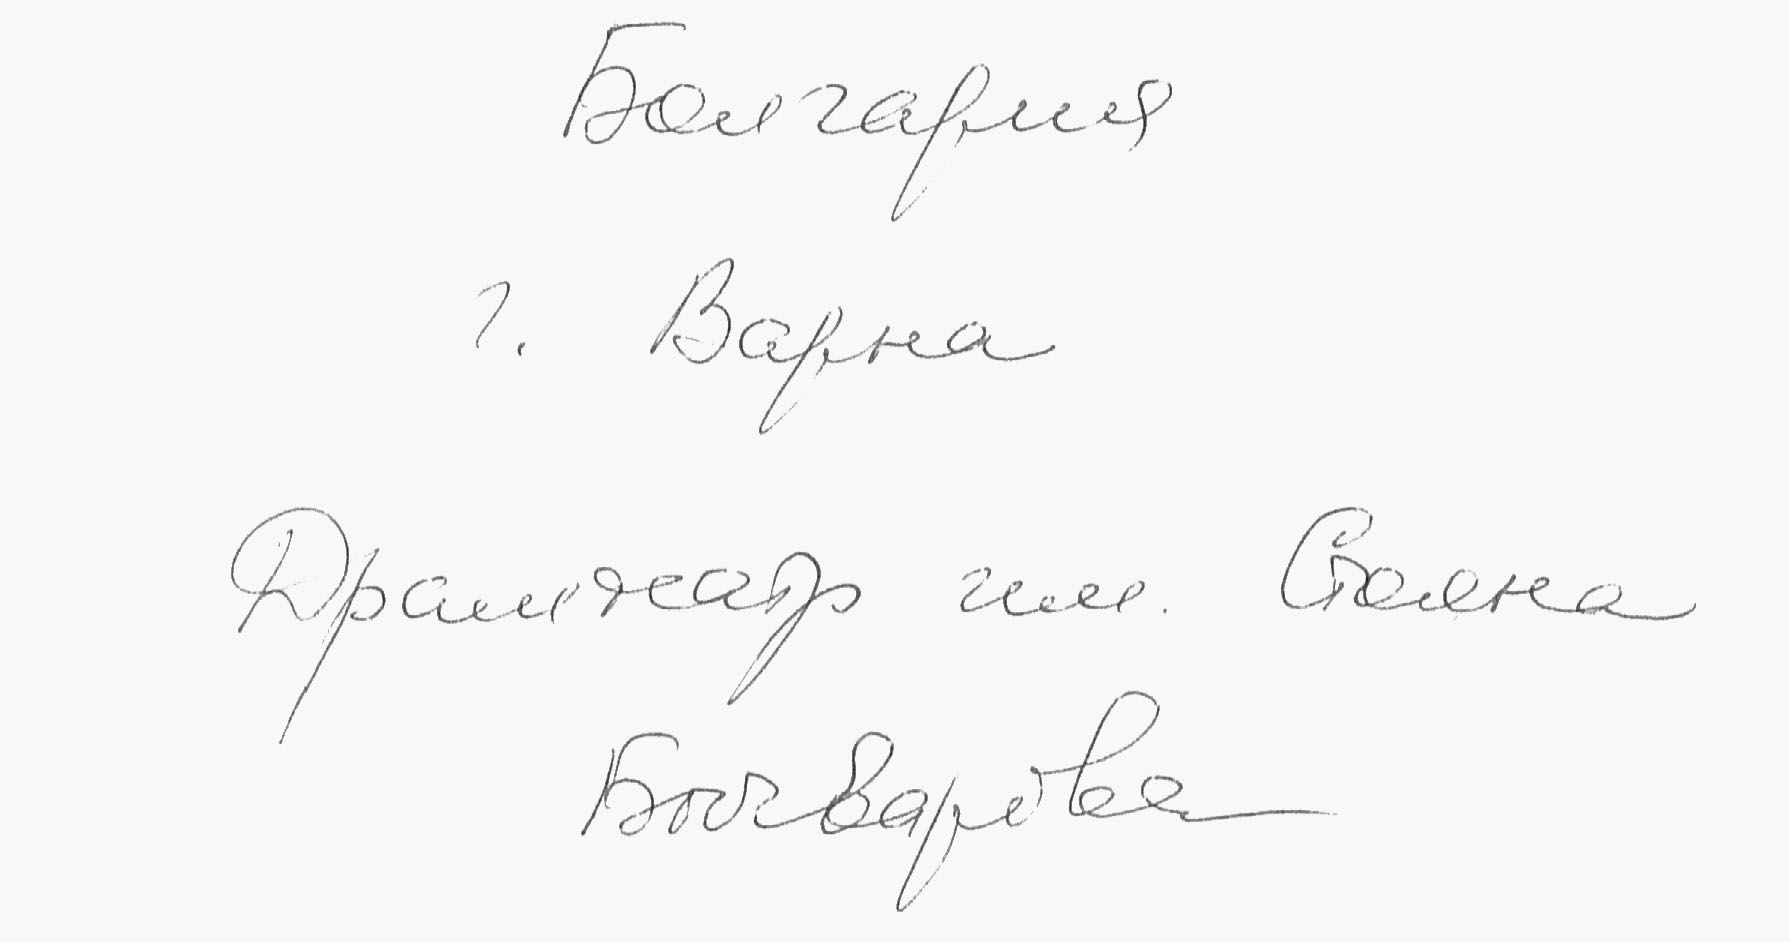 Болгария
г. Варна
Драмтеатр им. Стояна
Бъчварова